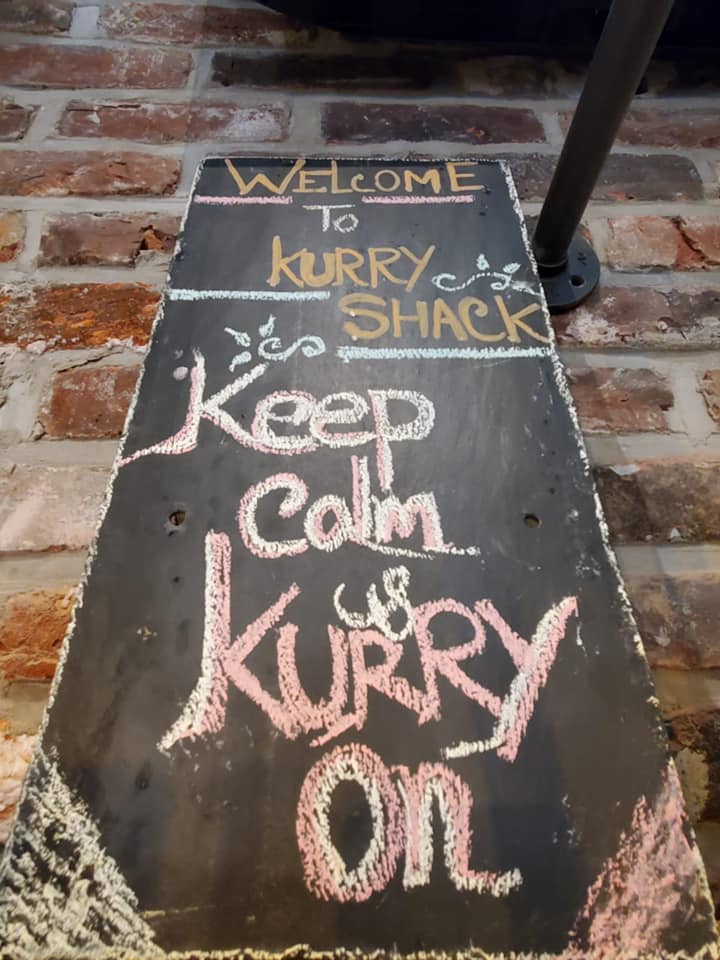 WELCOME
To
KURRY
SHACK
Keep
Calm
&
KURRY
On